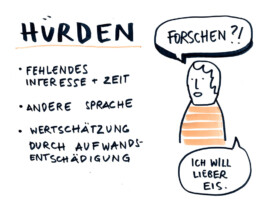 HÜRDEN
• FEHLENDES
INTERESSE + ZEIT
• ANDERE SPRACHE
• WERTSCHÄTZUNG
DURCH AUFWANDS-
ENTSCHÄDIGUNG
FORSCHEN?!
ICH WILL
LIEBER
EIS.